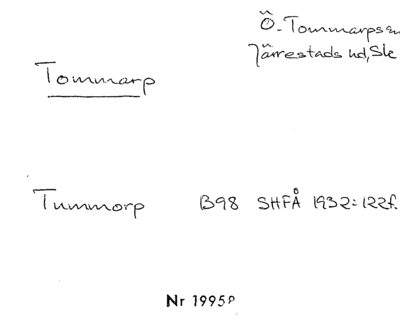 Ö-Tommarps sn
Järrestads hd, Sk
Tommarp
Tummorp B98 SHFÅ 1932: 122f.
Nr 1995